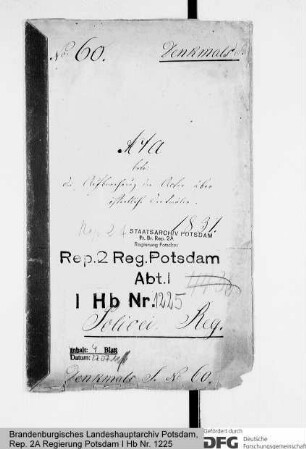 No 60. Denkmale
Acta
betr.
die Aufbewahrung der Acten über
öffentliche Denkmäler.
1831.
STAATSARCHIV POTSDAM
Pr. Br. Rep. 2A
Regierung Potsdam
Rep.2 Reg.Potsdam
Abt.I
I Hb Nr.1225
Policei Reg.
Inhalt: 4 Blatt
Datum:
Denkmale S. No 60.
Brandenburgisches Landeshauptarchiv Potsdam,
Rep. 2A Regierung Potsdam I Hb Nr. 1225
gefördert durch
DFG Deutsche
Forschungsgemeinschaft